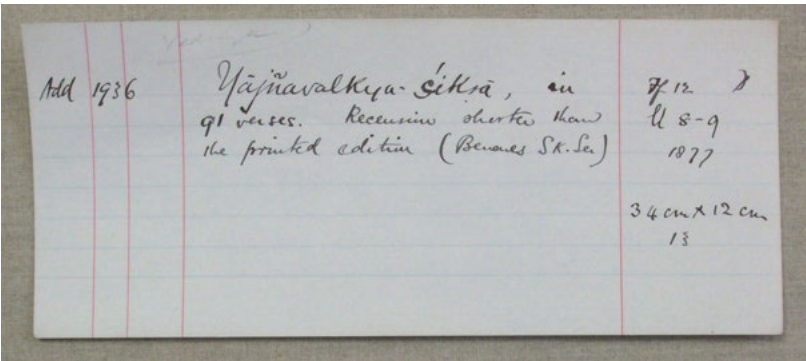 Add 1936 Yājñavalkya-śikṣā, in ff 12
91 verses. Recension shorter than ll 8-9
the printed edition (Benares Sk. Ser) 1877
34 cm x 12 cm
13